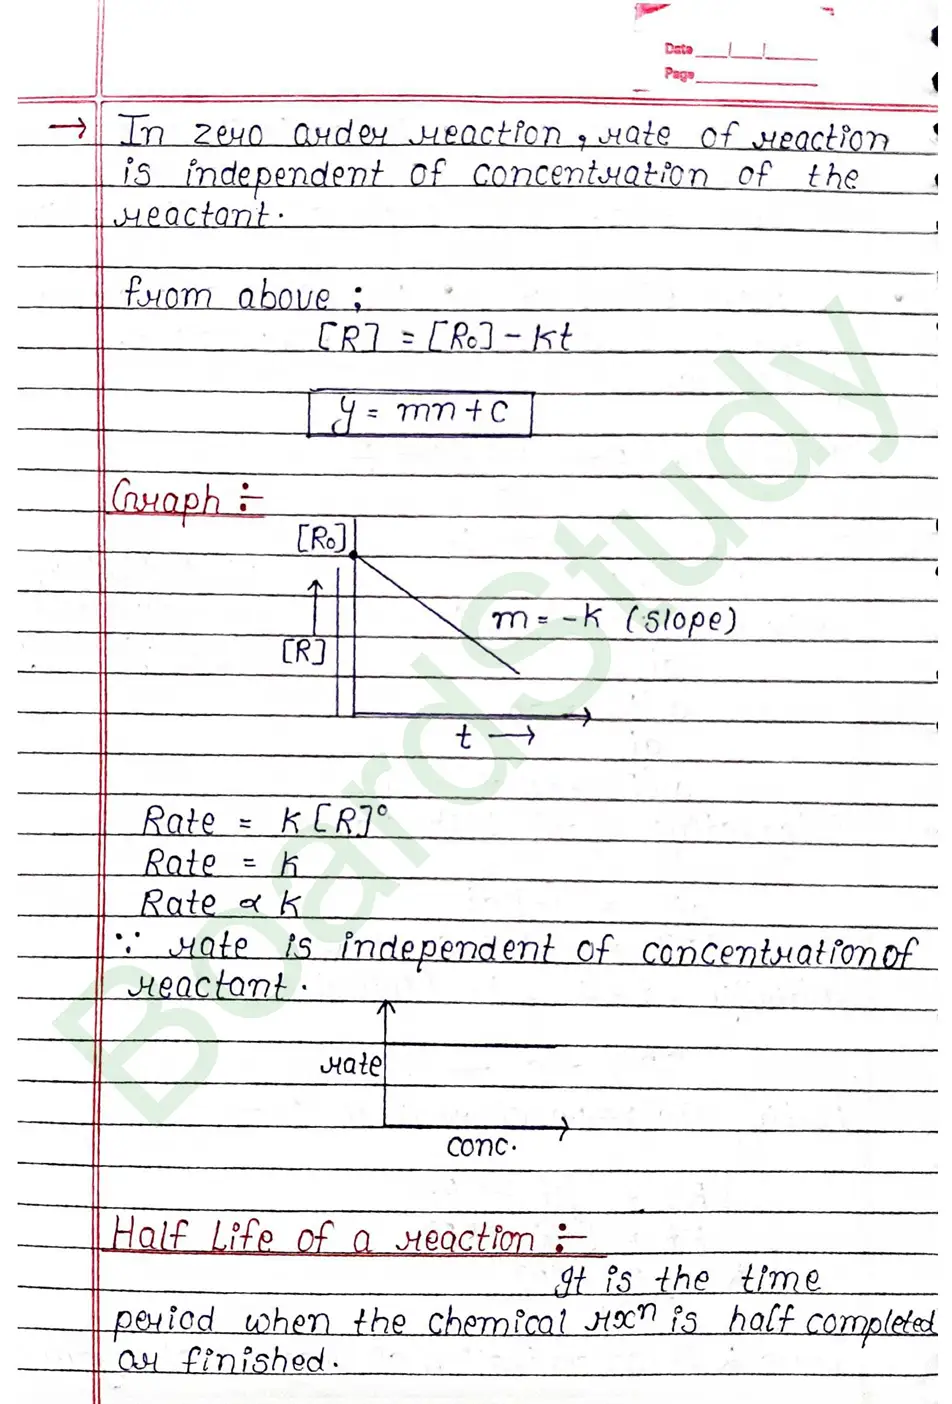 Date ___/___/___
Page ___
→ In zero order reaction, rate of reaction
is independent of concentration of the
reactant.
from above ;
[R] = [R₀] - Kt
y = mn + c
Graph :-
[R₀]
m = -K (slope)
[R]
t →
Rate = K [R]⁰
Rate = K
Rate ∝ K
∵ rate is independent of concentration of
reactant.
rate
conc.
Half Life of a reaction :-
It is the time
period when the chemical rxⁿ is half completed
or finished.
BoardStudy